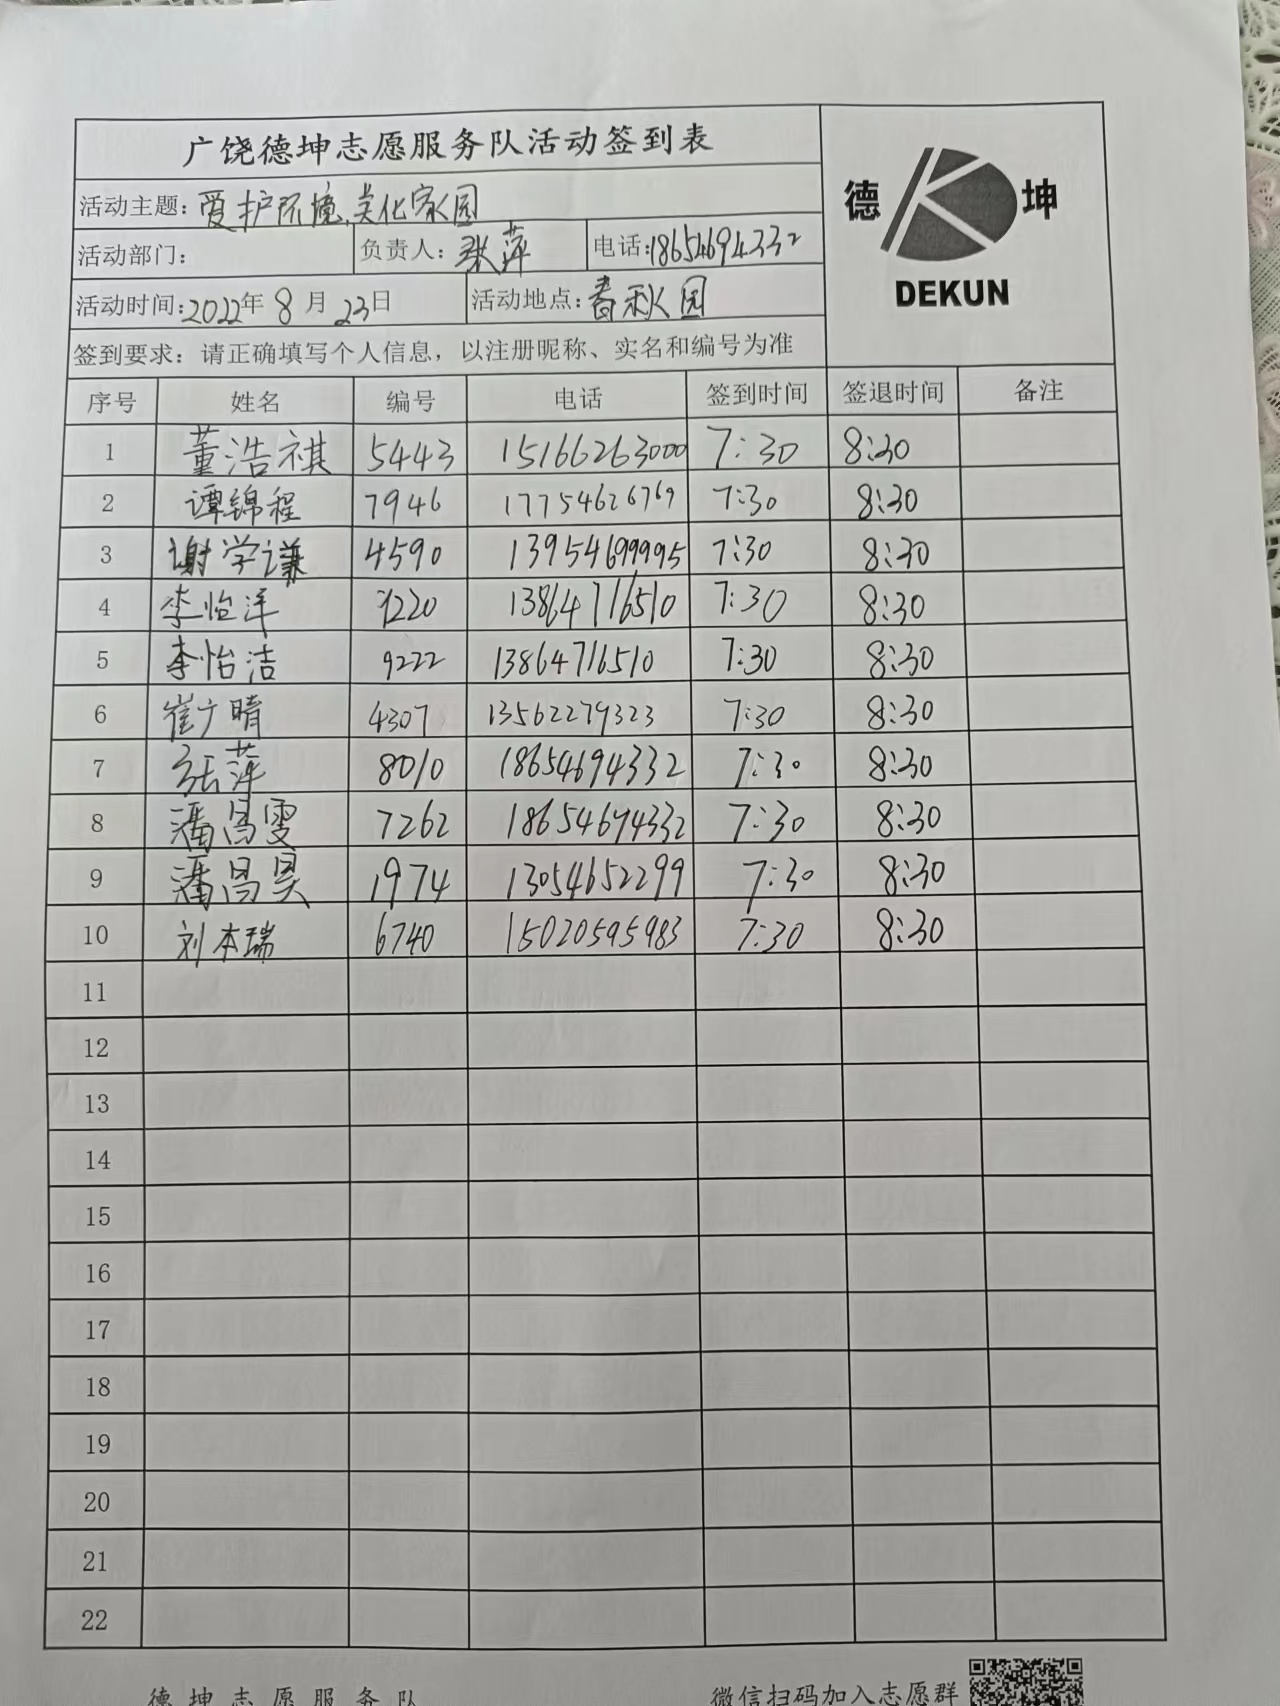 广饶德坤志愿服务队活动签到表
德 坤
DEKUN
活动主题：爱护环境、美化家园
活动部门： 负责人：张萍 电话：18654694332
活动时间：2022年 8月 23日 活动地点：春秋园
签到要求：请正确填写个人信息，以注册昵称、实名和编号为准
序号 姓名 编号 电话 签到时间 签退时间 备注
1 董浩祺 5443 15166263000 7:30 8:30
2 谭锦程 7946 17754626769 7:30 8:30
3 谢学谦 4590 13954699995 7:30 8:30
4 李怡洋 13864716510 7:30 8:30
5 李怡洁 9222 13864716510 7:30 8:30
6 崔广晴 4307 13562279323 7:30 8:30
7 张萍 8010 18654694332 7:30 8:30
8 潘昌雯 7262 18654694332 7:30 8:30
9 潘昌昊 1974 13054652299 7:30 8:30
10 刘本瑞 6740 15020595983 7:30 8:30
11
12
13
14
15
16
17
18
19
20
21
22
德坤志愿服务队 微信扫码加入志愿群